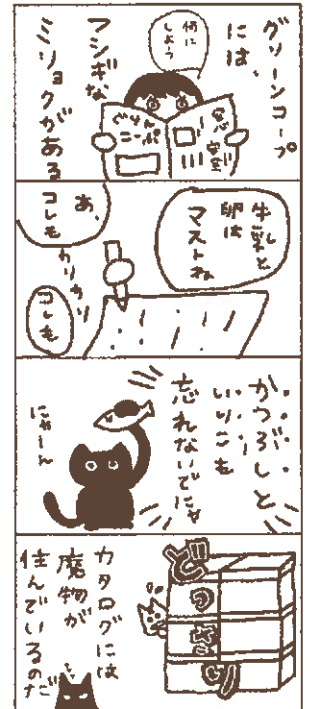 グリーンコープ
には、
何に
しよう
フシギな
ミリョクがある
安心
安全
ぐりん
こーぷ
牛乳と
卵は
マストね
あ、
コレも
カリカリ
コレも
かつぶしと
いりこを
忘れないでにゃ
にゃーん
どっさり
カタログには
魔物が
住んでいるのだ